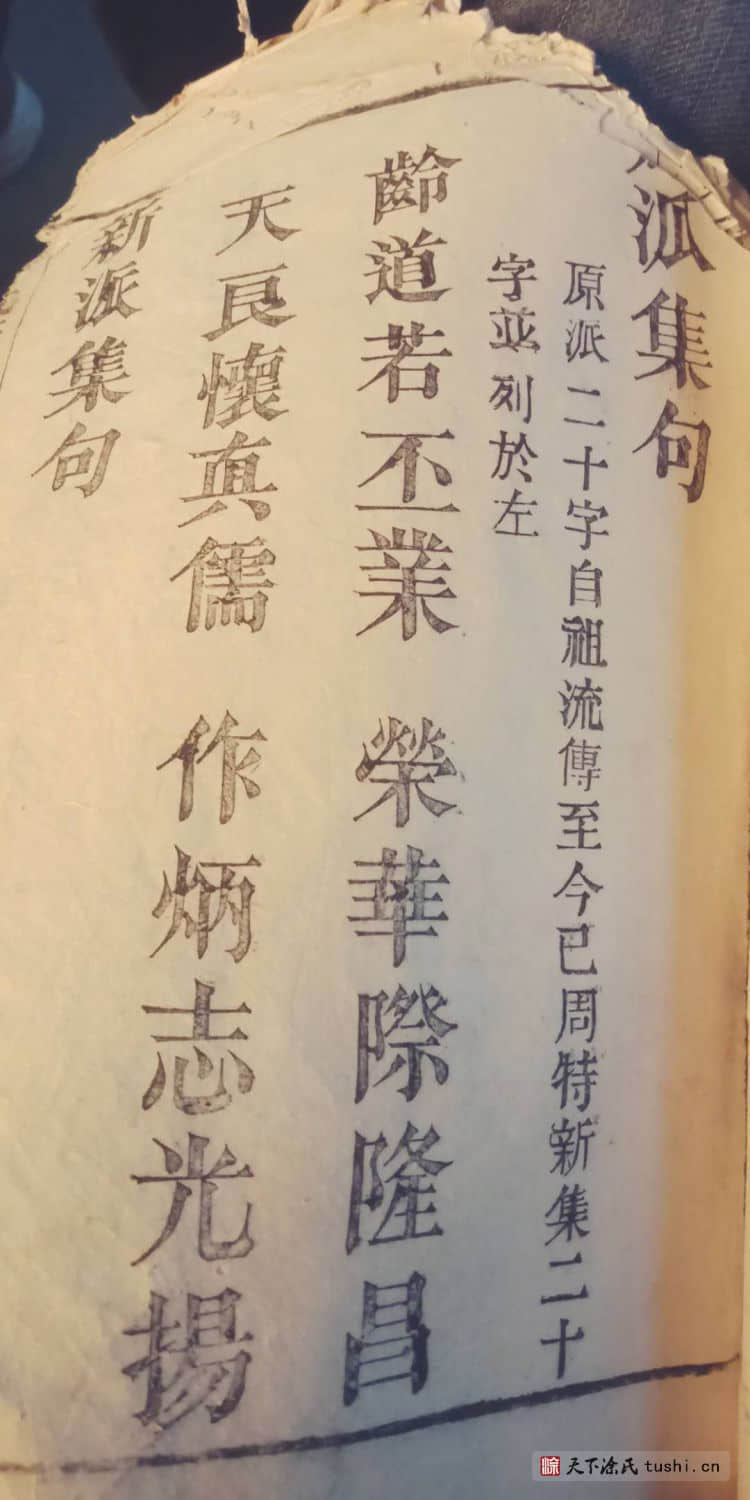 派集句
原派二十字自祖流傳至今已周特新集二十
字並列於左
齡道若丕業 榮華際隆昌
天良懷真儒 作炳志光揚
新派集句
天下涂氏 tushi.cn